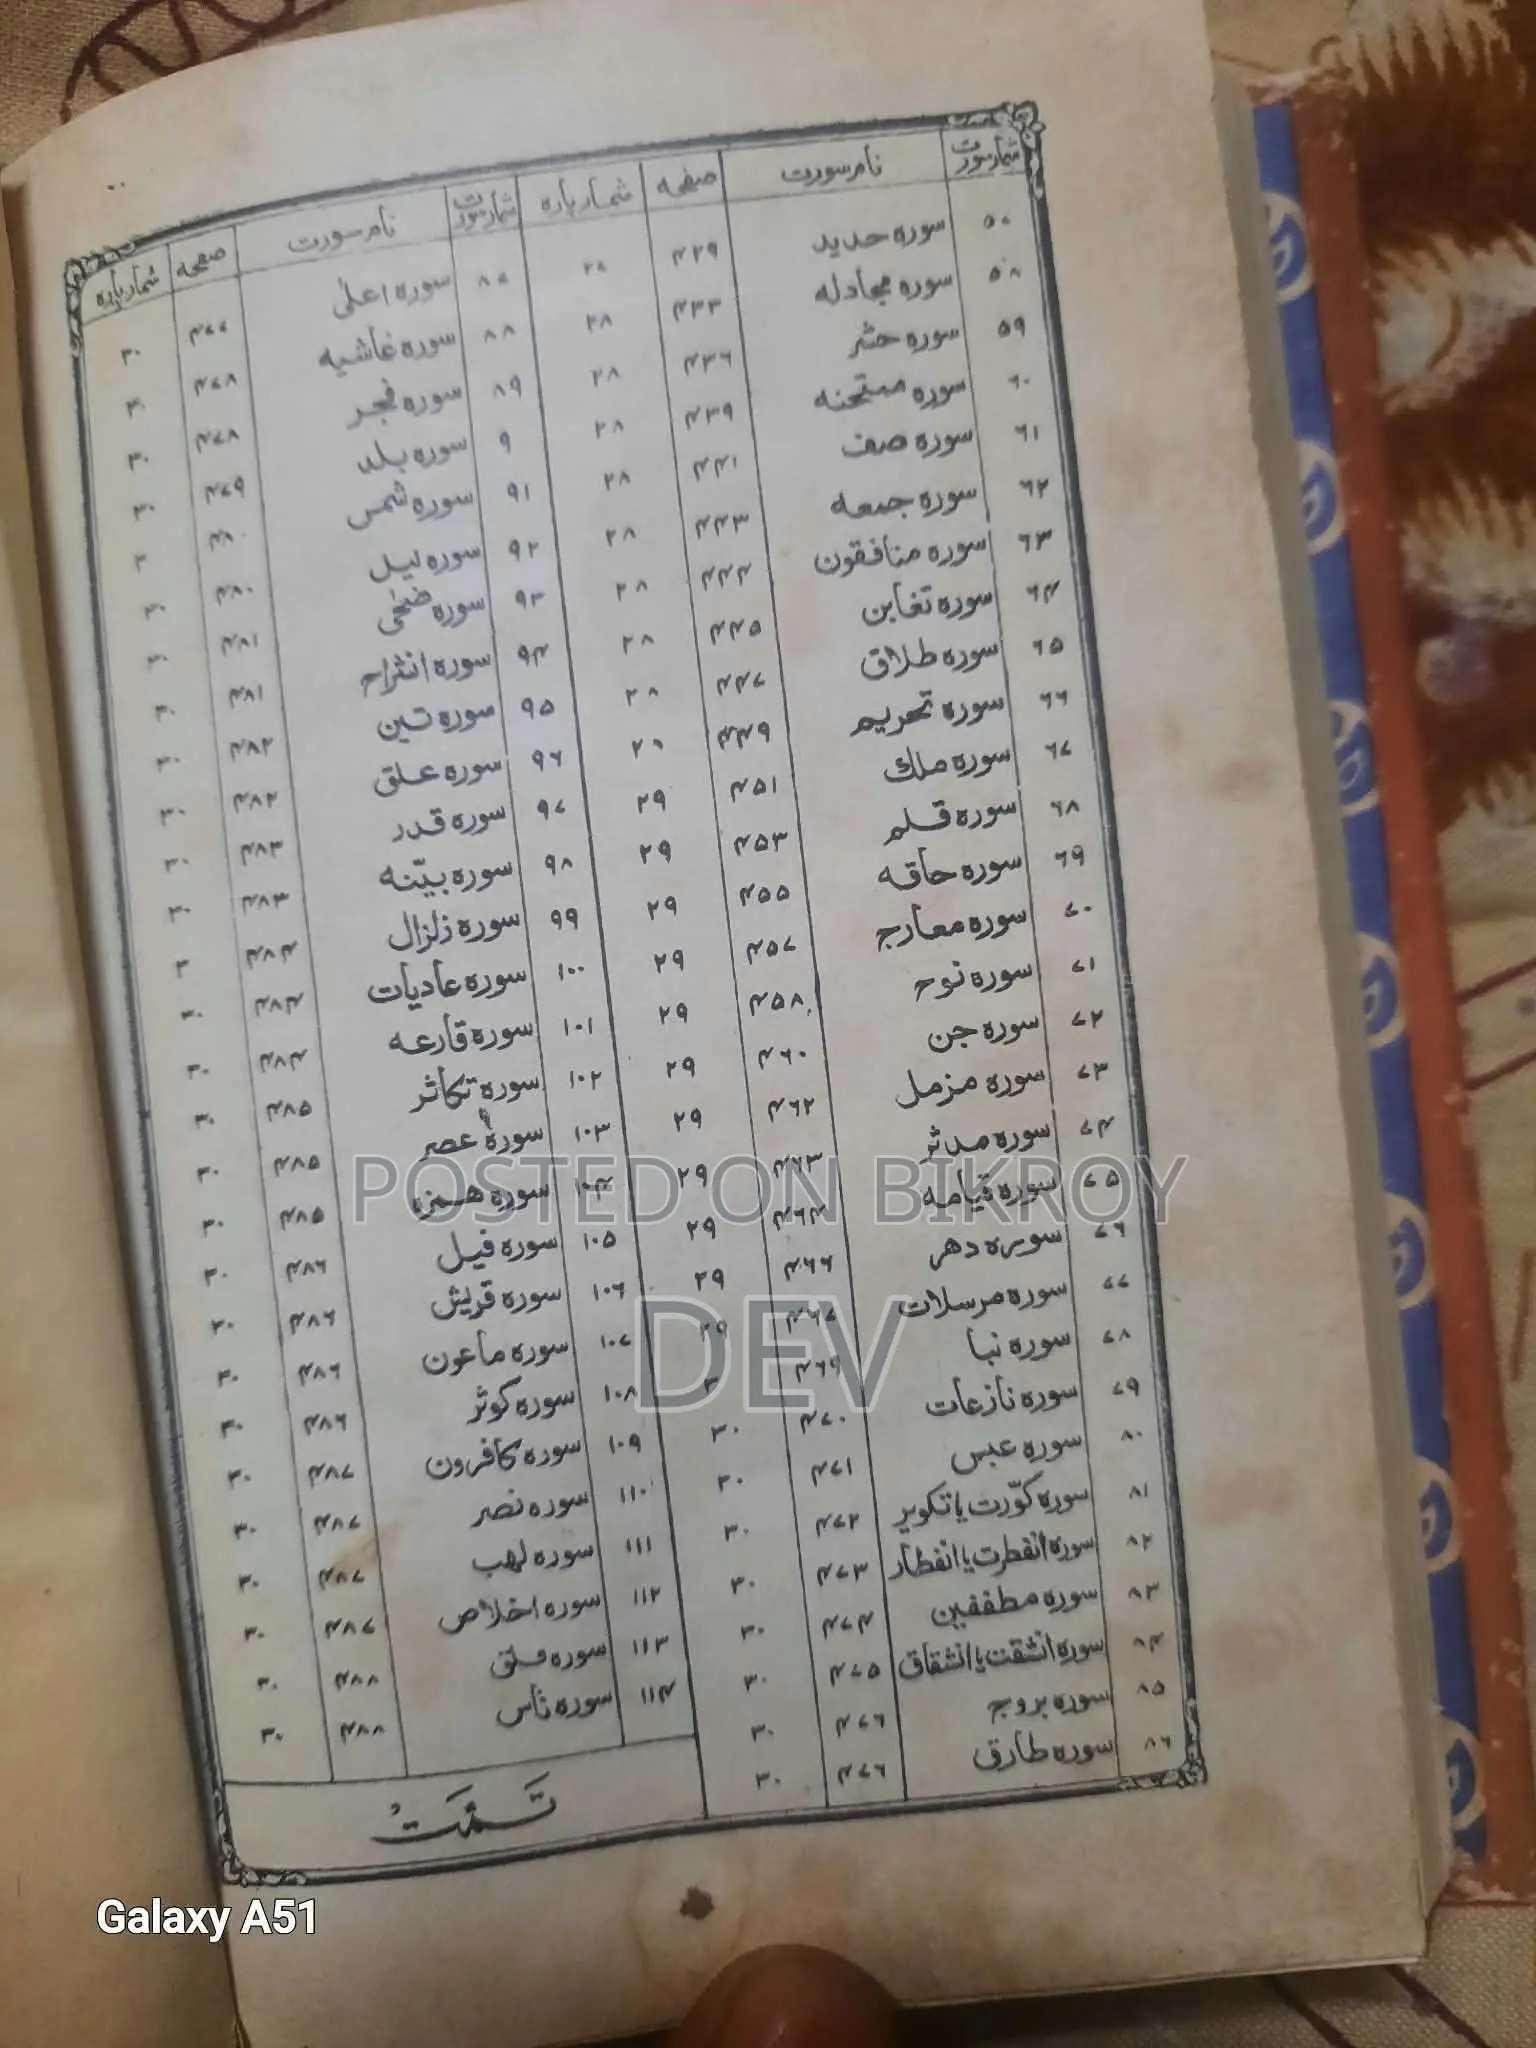 شمار سورت نام سورت صفحه شمار پاره
۵۷ سوره حدید ۴۲۹ ۲۸
۵۸ سوره مجادله ۴۳۳ ۲۸
۵۹ سوره حشر ۴۳۶ ۲۸
۶۰ سوره ممتحنه ۴۳۹ ۲۸
۶۱ سوره صف ۴۴۱ ۲۸
۶۲ سوره جمعه ۴۴۳ ۲۸
۶۳ سوره منافقون ۴۴۴ ۲۸
۶۴ سوره تغابن ۴۴۵ ۲۸
۶۵ سوره طلاق ۴۴۷ ۲۸
۶۶ سوره تحریم ۴۴۹ ۲۸
۶۷ سوره ملك ۴۵۱ ۲۹
۶۸ سوره قلم ۴۵۳ ۲۹
۶۹ سوره حاقه ۴۵۵ ۲۹
۷۰ سوره معارج ۴۵۷ ۲۹
۷۱ سوره نوح ۴۵۸ ۲۹
۷۲ سوره جن ۴۶۰ ۲۹
۷۳ سوره مزمل ۴۶۲ ۲۹
۷۴ سوره مدثر ۴۶۳ ۲۹
۷۵ سوره قیامه ۴۶۴ ۲۹
۷۶ سوره دهر ۴۶۶ ۲۹
۷۷ سوره مرسلات ۴۶۷ ۲۹
۷۸ سوره نبا ۴۶۹ ۳۰
۷۹ سوره نازعات ۴۷۰ ۳۰
۸۰ سوره عبس ۴۷۱ ۳۰
۸۱ سوره کوّرت یا تکویر ۴۷۲ ۳۰
۸۲ سوره انفطرت یا انفطار ۴۷۳ ۳۰
۸۳ سوره مطففین ۴۷۴ ۳۰
۸۴ سوره انشقت یا انشقاق ۴۷۵ ۳۰
۸۵ سوره بروج ۴۷۶ ۳۰
۸۶ سوره طارق ۴۷۶ ۳۰
شمار سورت نام سورت صفحه شمار پاره
۸۷ سوره اعلٰی ۴۷۷ ۳۰
۸۸ سوره غاشیه ۴۷۸ ۳۰
۸۹ سوره فجر ۴۷۸ ۳۰
۹ سوره بلد ۴۷۹ ۳۰
۹۱ سوره شمس ۴۸۰ ۳
۹۲ سوره لیل ۴۸۰ ۳۰
۹۳ سوره ضحٰی ۴۸۱ ۳۰
۹۴ سوره انشراح ۴۸۱ ۳۰
۹۵ سوره تین ۴۸۲ ۳۰
۹۶ سوره علق ۴۸۲ ۳۰
۹۷ سوره قدر ۴۸۳ ۳۰
۹۸ سوره بیّنه ۴۸۳ ۳۰
۹۹ سوره زلزال ۴۸۴ ۳
۱۰۰ سوره عادیات ۴۸۴ ۳۰
۱۰۱ سوره قارعه ۴۸۴ ۳۰
۱۰۲ سوره تکاثر ۴۸۵ ۳۰
۱۰۳ سوره عصر ۴۸۵ ۳۰
۱۰۴ سوره همزه ۴۸۵ ۳۰
۱۰۵ سوره فیل ۴۸۶ ۳۰
۱۰۶ سوره قریش ۴۸۶ ۳۰
۱۰۷ سوره ماعون ۴۸۶ ۳۰
۱۰۸ سوره کوثر ۴۸۶ ۳۰
۱۰۹ سوره کافرون ۴۸۷ ۳۰
۱۱۰ سوره نصر ۴۸۷ ۳۰
۱۱۱ سوره لهب ۴۸۷ ۳۰
۱۱۲ سوره اخلاص ۴۸۷ ۳۰
۱۱۳ سوره فلق ۴۸۸ ۳۰
۱۱۴ سوره ناس ۴۸۸ ۳۰
تَمَّتْ
POSTED ON BIKROY
DEV
Galaxy A51